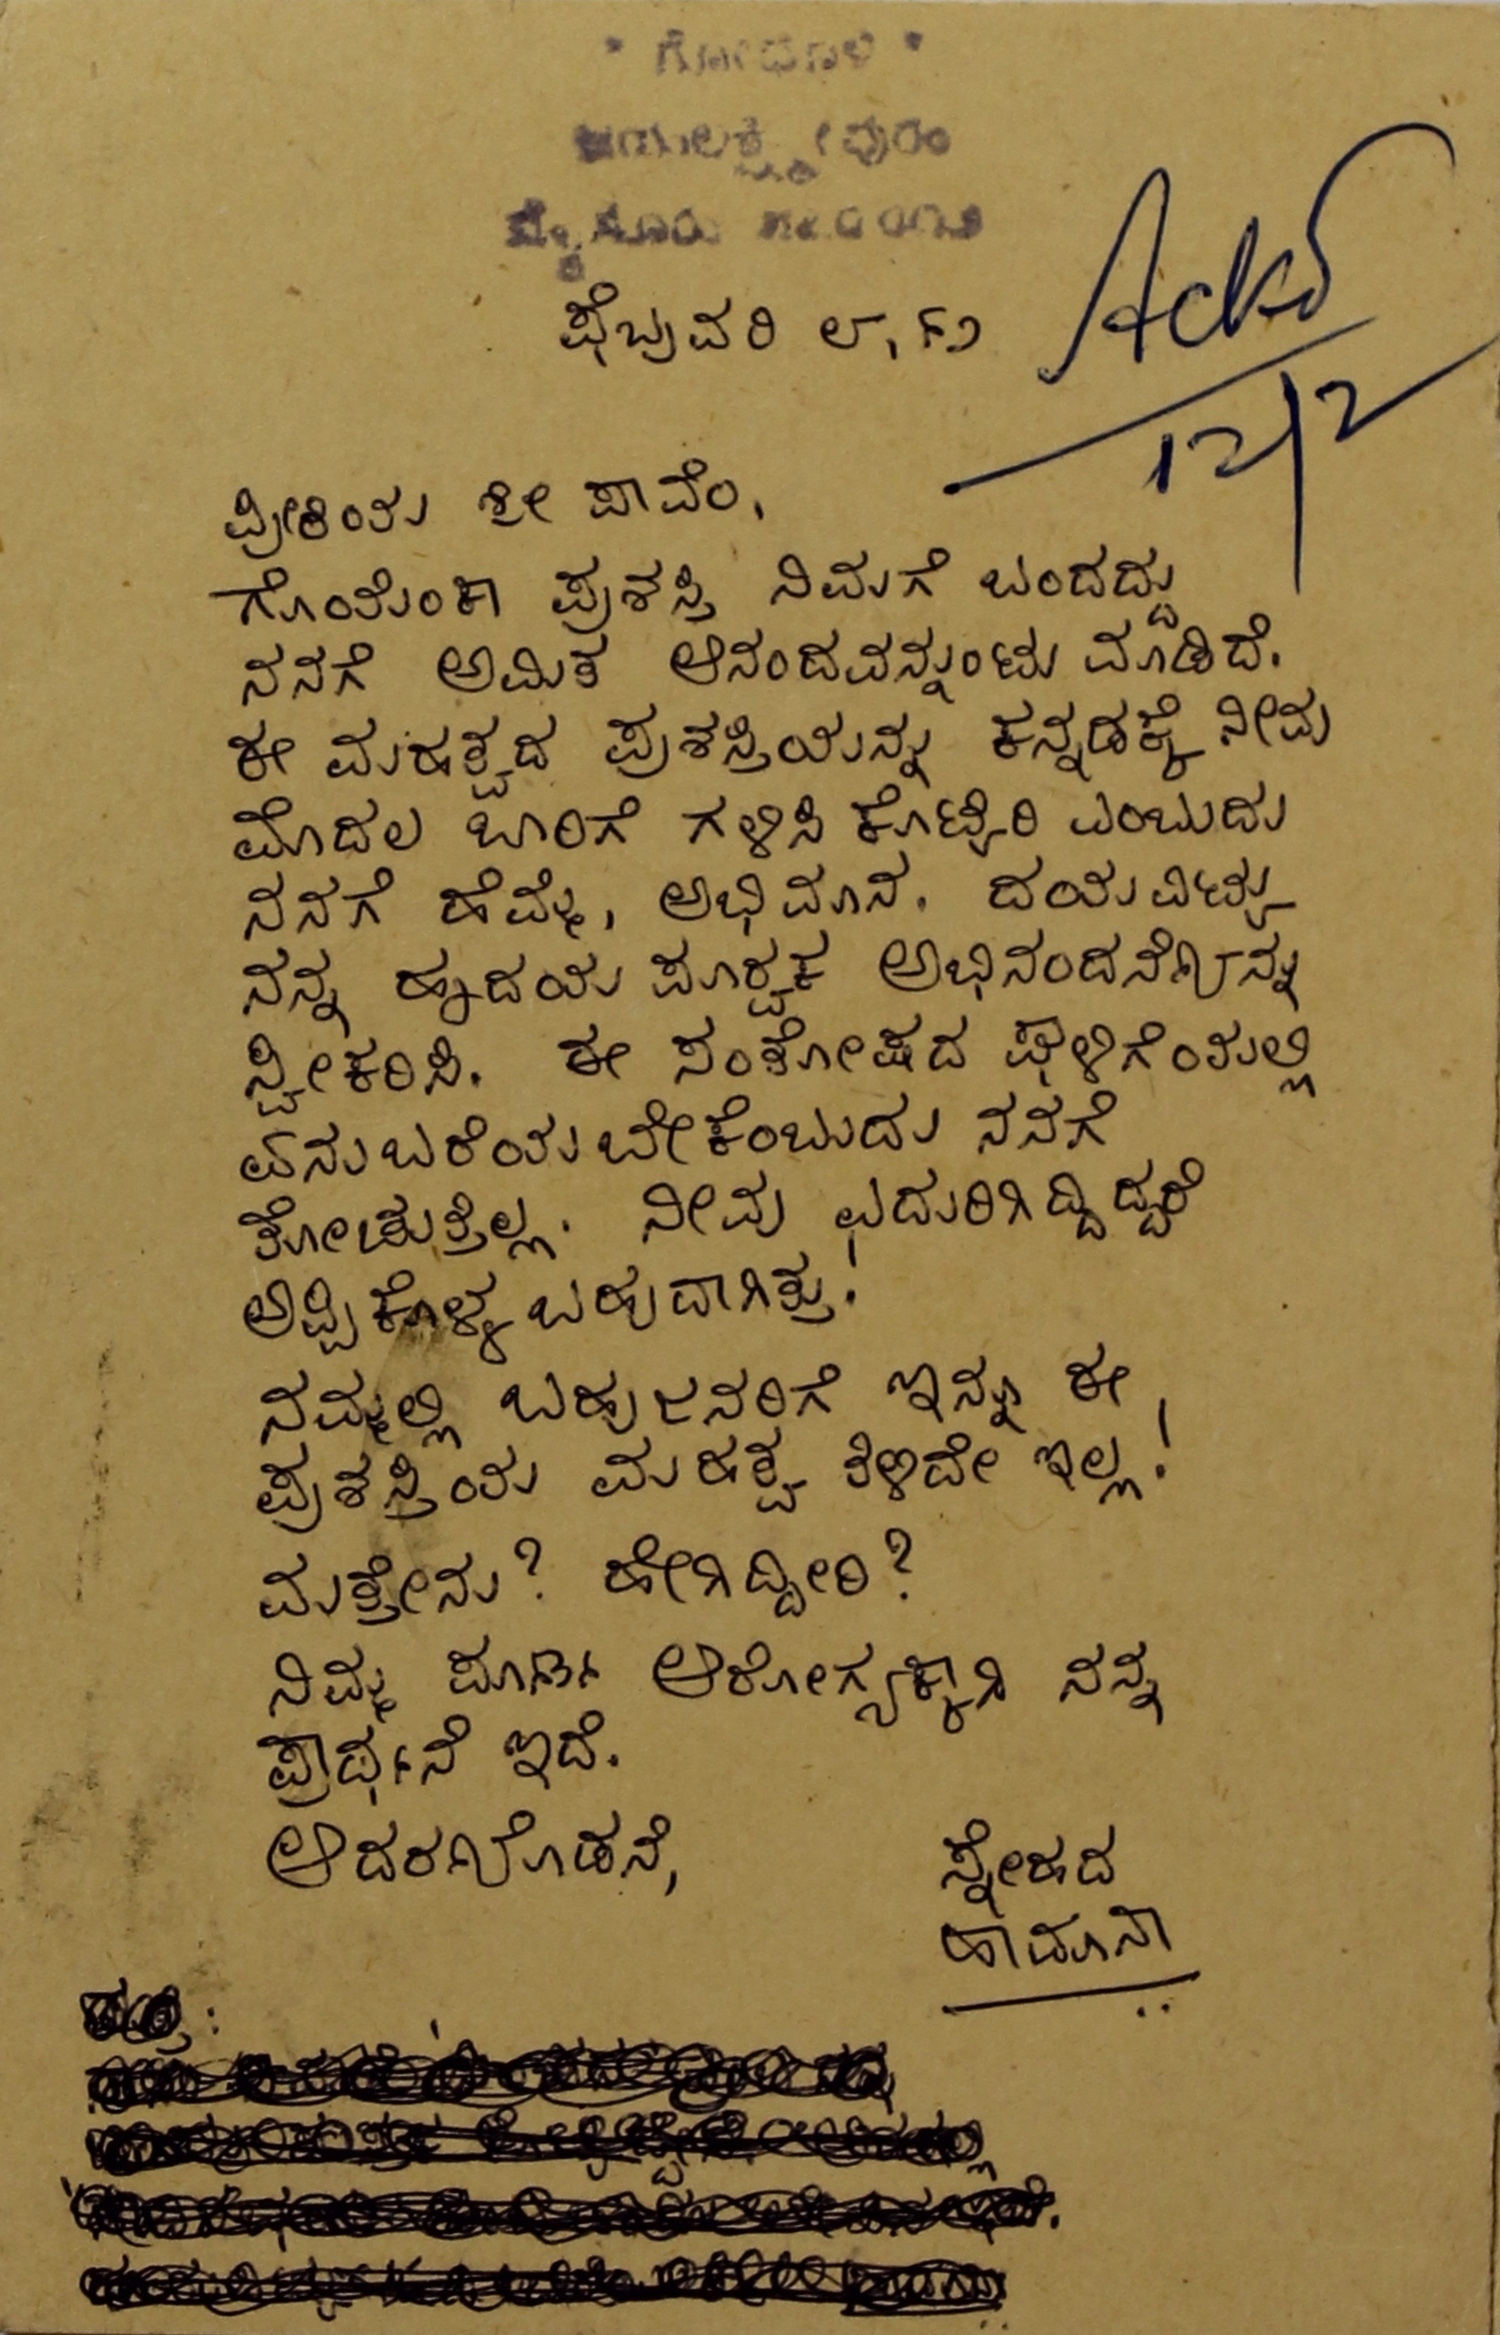 * ಗೋಧೂಳಿ *
ಜಯಲಕ್ಷ್ಮೀಪುರಂ
ಮೈಸೂರು
ಫೆಬ್ರುವರಿ ೮, ೯೨
Ackd
12/2
ಪ್ರೀತಿಯ ಶ್ರೀ ಪಾವೆಂ,
ಗೊಯೆಂಕಾ ಪ್ರಶಸ್ತಿ ನಿಮಗೆ ಬಂದದ್ದು
ನನಗೆ ಅಮಿತ ಆನಂದವನ್ನುಂಟು ಮಾಡಿದೆ.
ಈ ಮಹತ್ವದ ಪ್ರಶಸ್ತಿಯನ್ನು ಕನ್ನಡಕ್ಕೆ ನೀವು
ಮೊದಲ ಬಾರಿಗೆ ಗಳಿಸಿ ಕೊಟ್ಟಿರಿ ಎಂಬುದು
ನನಗೆ ಹೆಮ್ಮೆ, ಅಭಿಮಾನ. ದಯವಿಟ್ಟು
ನನ್ನ ಹೃದಯ ಪೂರ್ವಕ ಅಭಿನಂದನೆಗಳನ್ನು
ಸ್ವೀಕರಿಸಿ. ಈ ಸಂತೋಷದ ಘಳಿಗೆಯಲ್ಲಿ
ಏನು ಬರೆಯಬೇಕೆಂಬುದು ನನಗೆ
ತೋಚುತ್ತಿಲ್ಲ. ನೀವು ಎದುರಿಗಿದ್ದಿದ್ದರೆ
ಅಪ್ಪಿಕೊಳ್ಳಬಹುದಾಗಿತ್ತು!
ನಮ್ಮಲ್ಲಿ ಬಹುಜನರಿಗೆ ಇನ್ನೂ ಈ
ಪ್ರಶಸ್ತಿಯ ಮಹತ್ವ ತಿಳಿದೇ ಇಲ್ಲ!
ಮತ್ತೇನು? ಹೇಗಿದ್ದೀರಿ?
ನಿಮ್ಮ ಪೂರ್ಣ ಆರೋಗ್ಯಕ್ಕಾಗಿ ನನ್ನ
ಪ್ರಾರ್ಥನೆ ಇದೆ.
ಆದರಗಳೊಡನೆ,
ಸ್ನೇಹದ
ಹಾಮಾನಾ